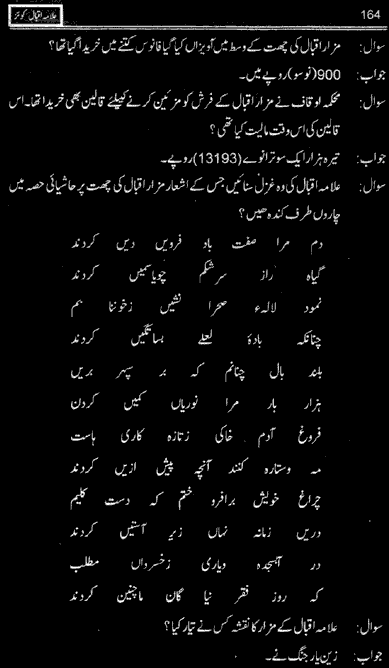 164
علامہ اقبال کوئز
سوال: مزار اقبال کی چھت کے وسط میں آویزاں کیا گیا فانوس کتنے میں خریدا گیا تھا؟
جواب: 900(نو سو) روپے میں۔
سوال: محکمہ اوقاف نے مزار اقبال کے فرش کو مزئین کرنے کیلئے قالین بھی خریدا تھا۔ اس
قالین کی اس وقت مالیت کیا تھی؟
جواب: تیرہ ہزار ایک سو ترانوے (13193) روپے۔
سوال: علامہ اقبال کی وہ غزل سنائیں جس کے اشعار مزار اقبال کی چھت پر حاشیائی حصہ میں
چاروں طرف کندہ ھیں؟
دم مرا صفت باد فرویں دیں کردند
گیاہ راز سرشکم چو یاسمیں کردند
نمود لالہء صحرا نشیں زخوننا بم
چنانکہ بادۂ لعلے بساتگیں کردند
بلند بال چنانم کہ بر سپہر بریں
ہزار بار مرا نوریاں کمیں کردن
فروغ آدم خاکی زتازہ کاری ہاست
مہ وستارہ کنند آنچہ پیش ازیں کردند
چراغ خویش برافرو ختم کہ دست کلیم
دریں زمانہ نہاں زیر آستیں کردند
در آبسجدہ ویاری زخسرداں مطلب
کہ روز فقر نیا گان ماچنین کردند
سوال: علامہ اقبال کے مزار کا نقشہ کس نے تیار کیا؟
جواب: زین یار جنگ نے۔